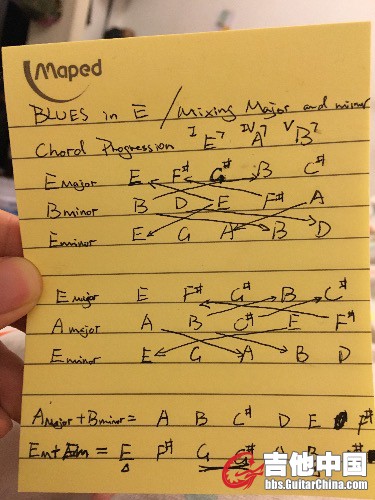 Maped
BLUES in E / Mixing Major and minor
Chord Progression I E7 IV A7 V B7
E Major E F# G# B C#
B minor B D E F# A
E minor E G A B D
E major E F# G# B C#
A major A B C# E F#
E minor E G A B D
A Major + B minor = A B C# D E F#
Em+ = E F# G G# B
吉他中国
bbs.GuitarChina.com